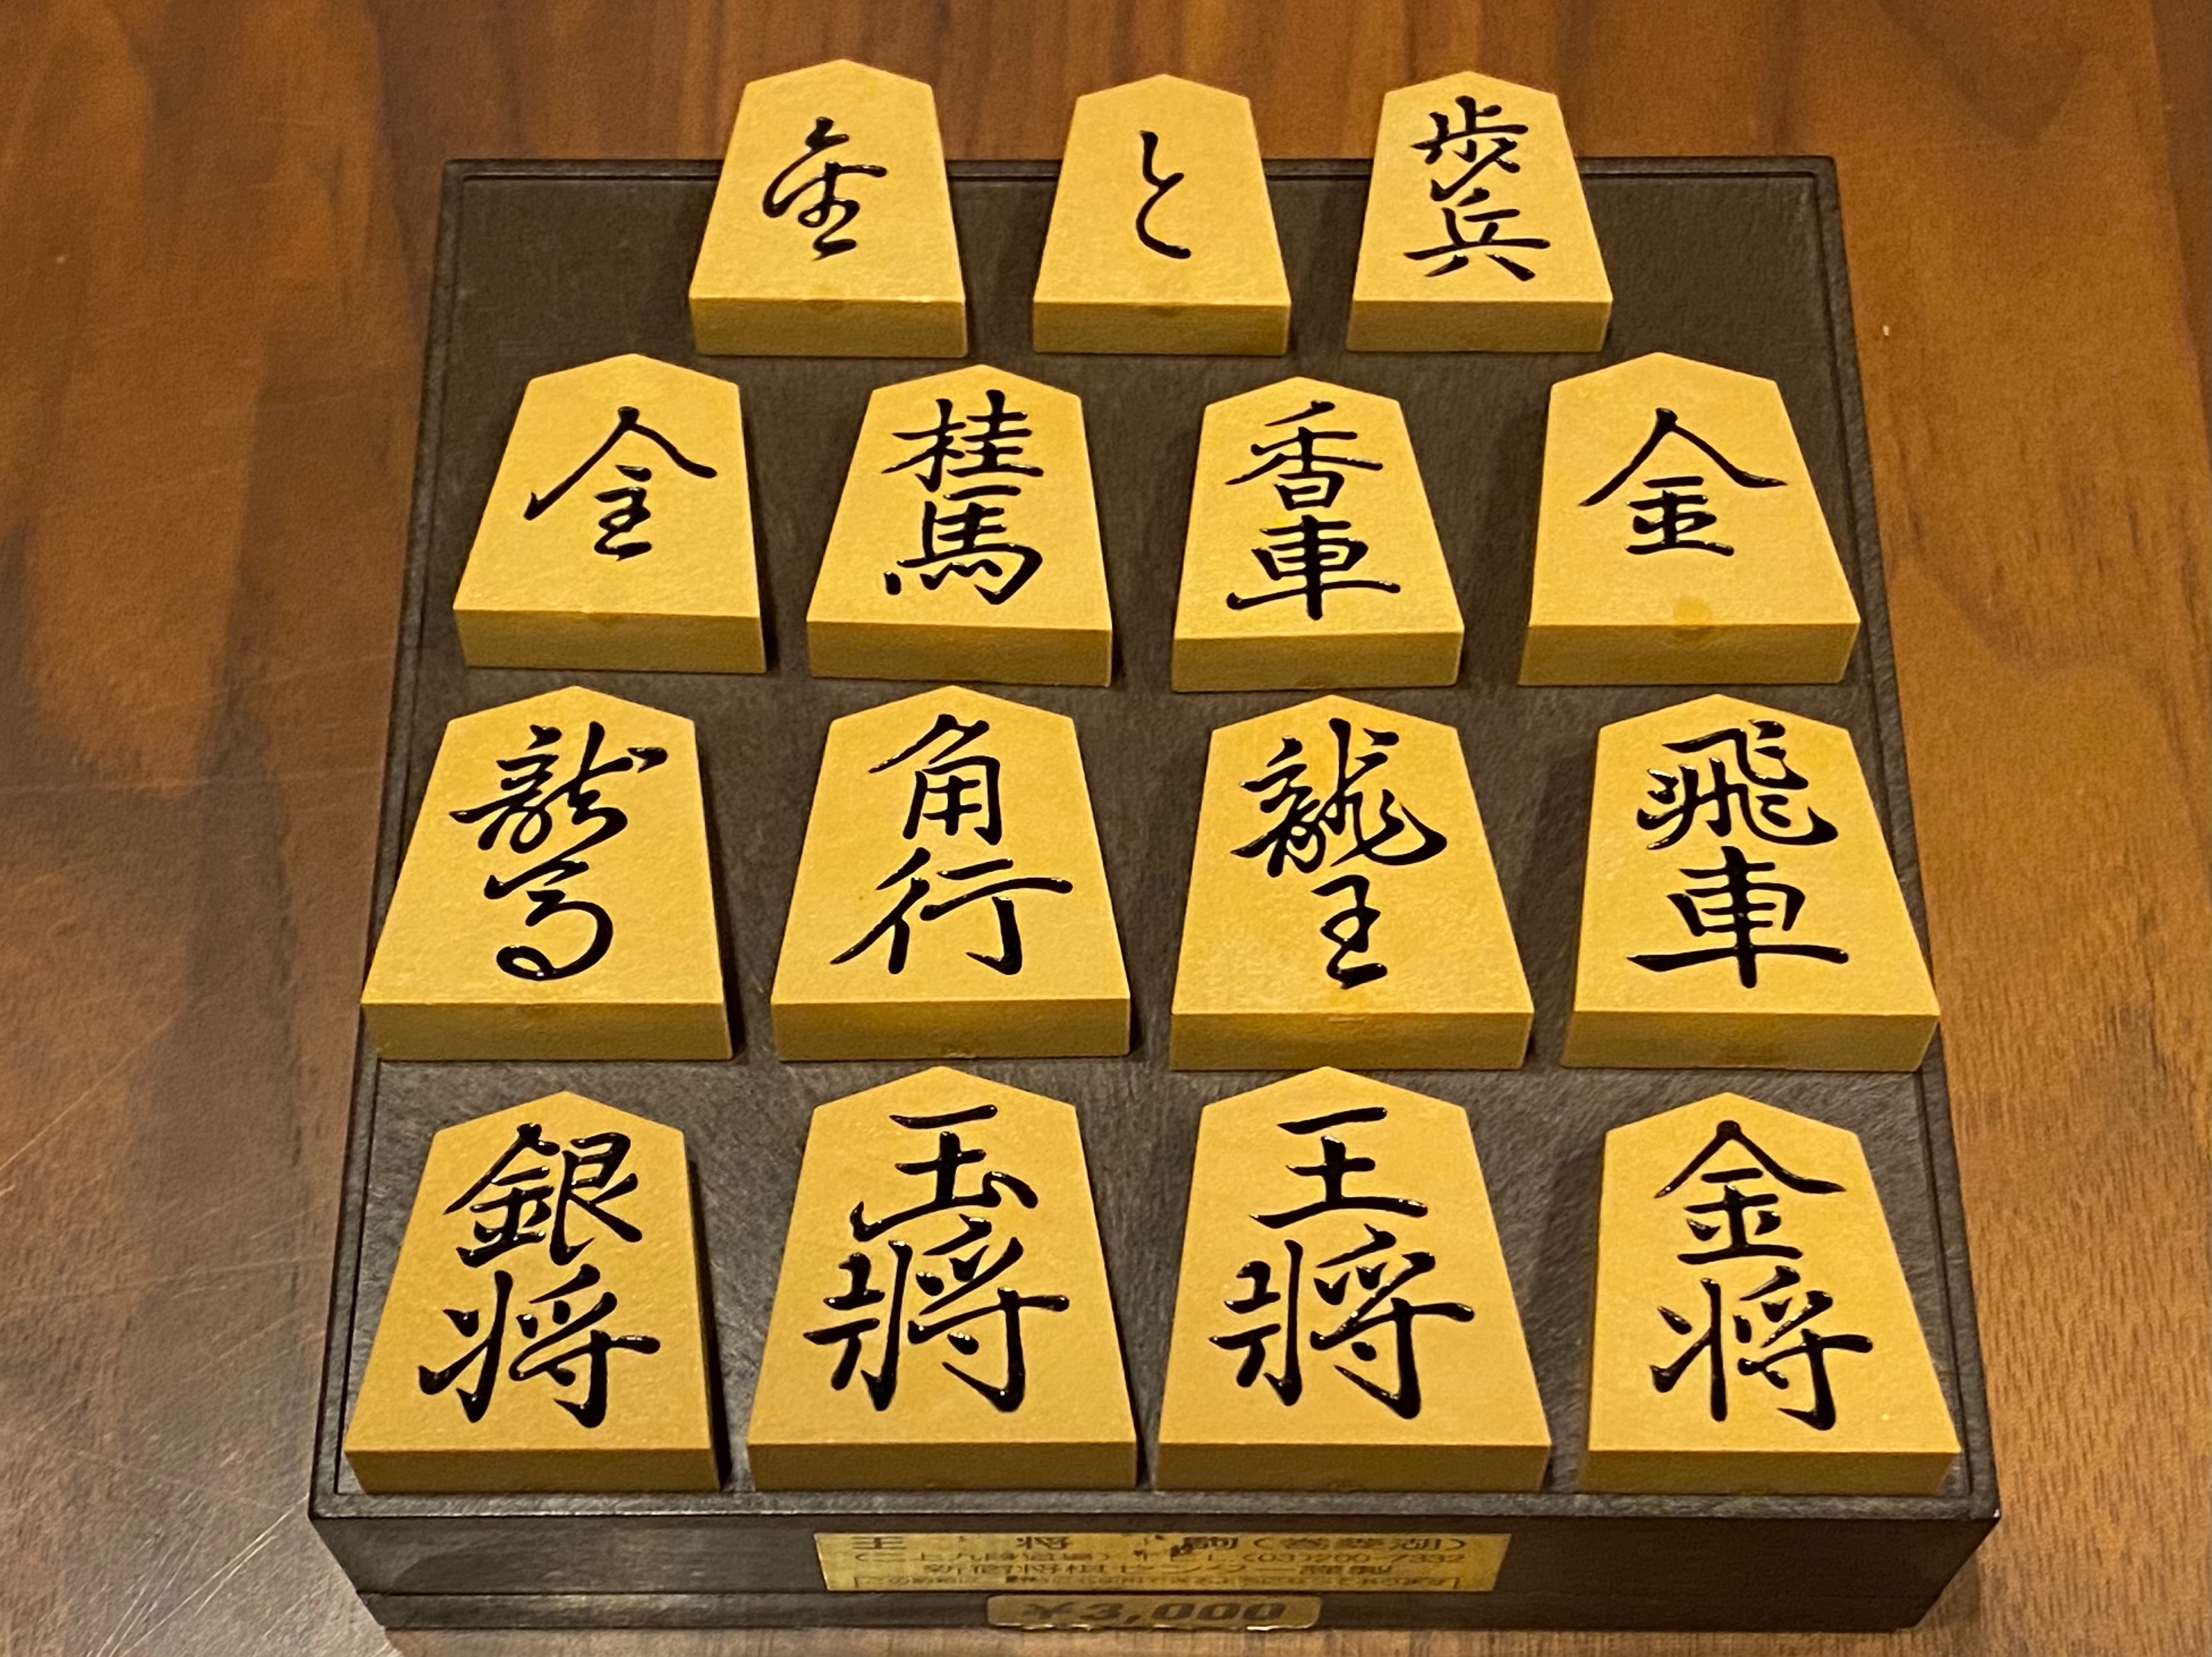 金 と 歩兵
全 桂馬 香車 金
龍馬 角行 龍王 飛車
銀将 玉将 王将 金将
王 将 駒(巻菱湖)
(03)200-7332
新宿将棋センター謹製
¥3,000